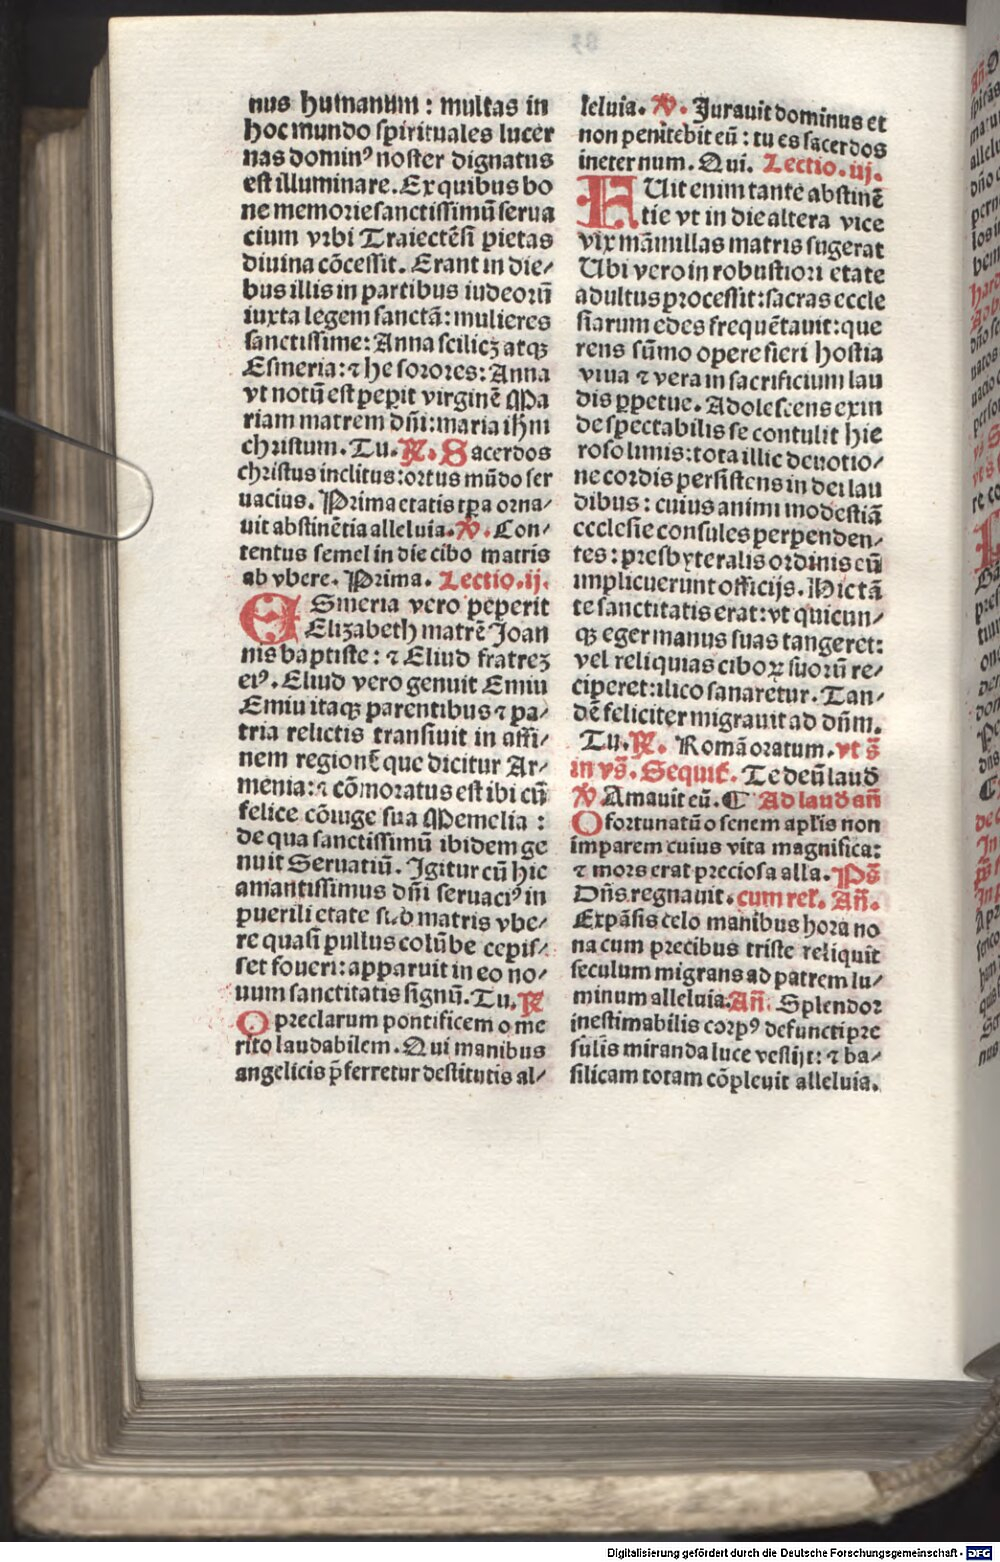 nus humanum : multas in
hoc mundo spirituales lucer
nas dominꝰ noster dignatus
est illuminare. Ex quibus bo
ne memorie sanctissimū serua
cium vrbi Traiectēsi pietas
diuina cōcessit. Erant in die⸗
bus illis in partibus iudeorū
iuxta legem sanctā: mulieres
sanctissime: Anna scilicꝫ atqꝫ
Esmeria: ⁊ he sorores: Anna
vt notū est peperit virginē Ma
riam matrem dn̄i: maria ih̄m
christum. Tu. ℟. Sacerdos
christus inclitus: ortus mūdo ser
uacius. Prima etatis tp̄a orna⸗
uit abstinētia alleluia. ℣. Con⸗
tentus semel in die cibo matris
ab vbere. Prima. Lectio. ij.
ESmeria vero peperit
Elizabeth matrē Joan
nis baptiste: ⁊ Eliud fratreꝫ
eiꝰ. Eliud vero genuit Emiu
Emiu itaqꝫ parentibus ⁊ pa⸗
tria relictis transiuit in affi⸗
nem regionē que dicitur Ar⸗
menia: ⁊ cōmoratus est ibi cū
felice cōiuge sua Memelia :
de qua sanctissimū ibidem ge
nuit Seruatiū. Igitur cū hic
amantissimus dn̄i seruaciꝰ in
puerili etate sub matris vbe⸗
re quasi pullus colūbe cepis⸗
set foueri: apparuit in eo no⸗
uum sanctitatis signū. Tu. ℟
O preclarum pontificem o me
rito laudabilem. Qui manibus
angelicis p̄ferretur destitutis al⸗
leluia. ℣. Jurauit dominus et
non penitebit eū : tu es sacerdos
ineternum. Qui. Lectio. iij.
FUit enim tante abstinē
tie vt in die altera vice
vix māmillas matris sugerat
Ubi vero in robustiori etate
adultus processit: sacras eccle
siarum edes frequētauit: que
rens sūmo opere fieri hostia
viua ⁊ vera in sacrificium lau
dis ꝑpetue. Adolescens exin
de spectabilis se contulit hie
rosolimis: tota illic deuotio⸗
ne cordis persistens in dei lau
dibus : cuius animi modestiā
ecclesie consules perpenden⸗
tes : presbyteralis ordinis eū
implicuerunt officijs. Hic tā
te sanctitatis erat: vt quicun⸗
qꝫ eger manus suas tangeret:
vel reliquias ciboꝝ suorū re⸗
ciperet: ilico sanaretur. Tan⸗
dē feliciter migrauit ad dn̄m.
Tu. ℟. Romā oratum. vt s̄
in vs̄. Sequit᷑. Te deū laud
℣ Amauit eū. ¶ Ad laud an̄
O fortunatū o senem apl̄is non
imparem cuius vita magnifica:
⁊ mors erat preciosa alla. Ps̄
Dn̄s regnauit. cum rel̄. An̄.
Expāsis celo manibus hora no
na cum precibus triste reliquit
seculum migrans ad patrem lu⸗
minum alleluia. An̄. Splendor
inestimabilis corpꝰ defuncti pre
sulis miranda luce vestijt: ⁊ ba⸗
silicam totam cōpleuit alleluia.
Digitalisierung gefördert durch die Deutsche Forschungsgemeinschaft - DFG